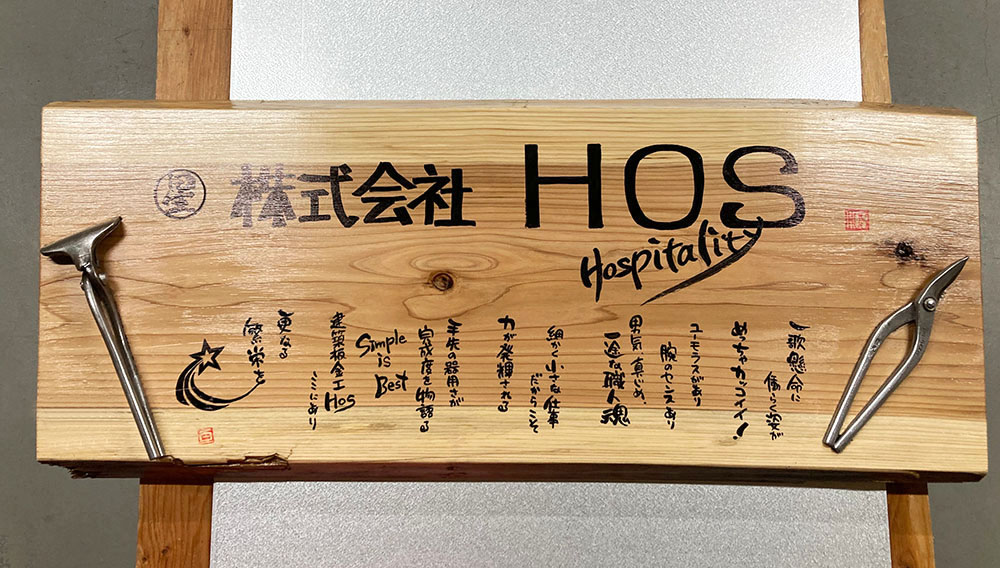 株式会社 HOS
Hospitality
一歌懸命に
働らく姿が
めっちゃカッコイイ!
ユーモラスがあり
腕のセンスあり
男気、真じめ、
一途な職人魂
細かく小さな仕事
だからこそ
力が発揮される
手先の器用さが
完成度を物語る
Simple
is
Best
建築板金工 Hos
ここにあり
更なる
繁栄を